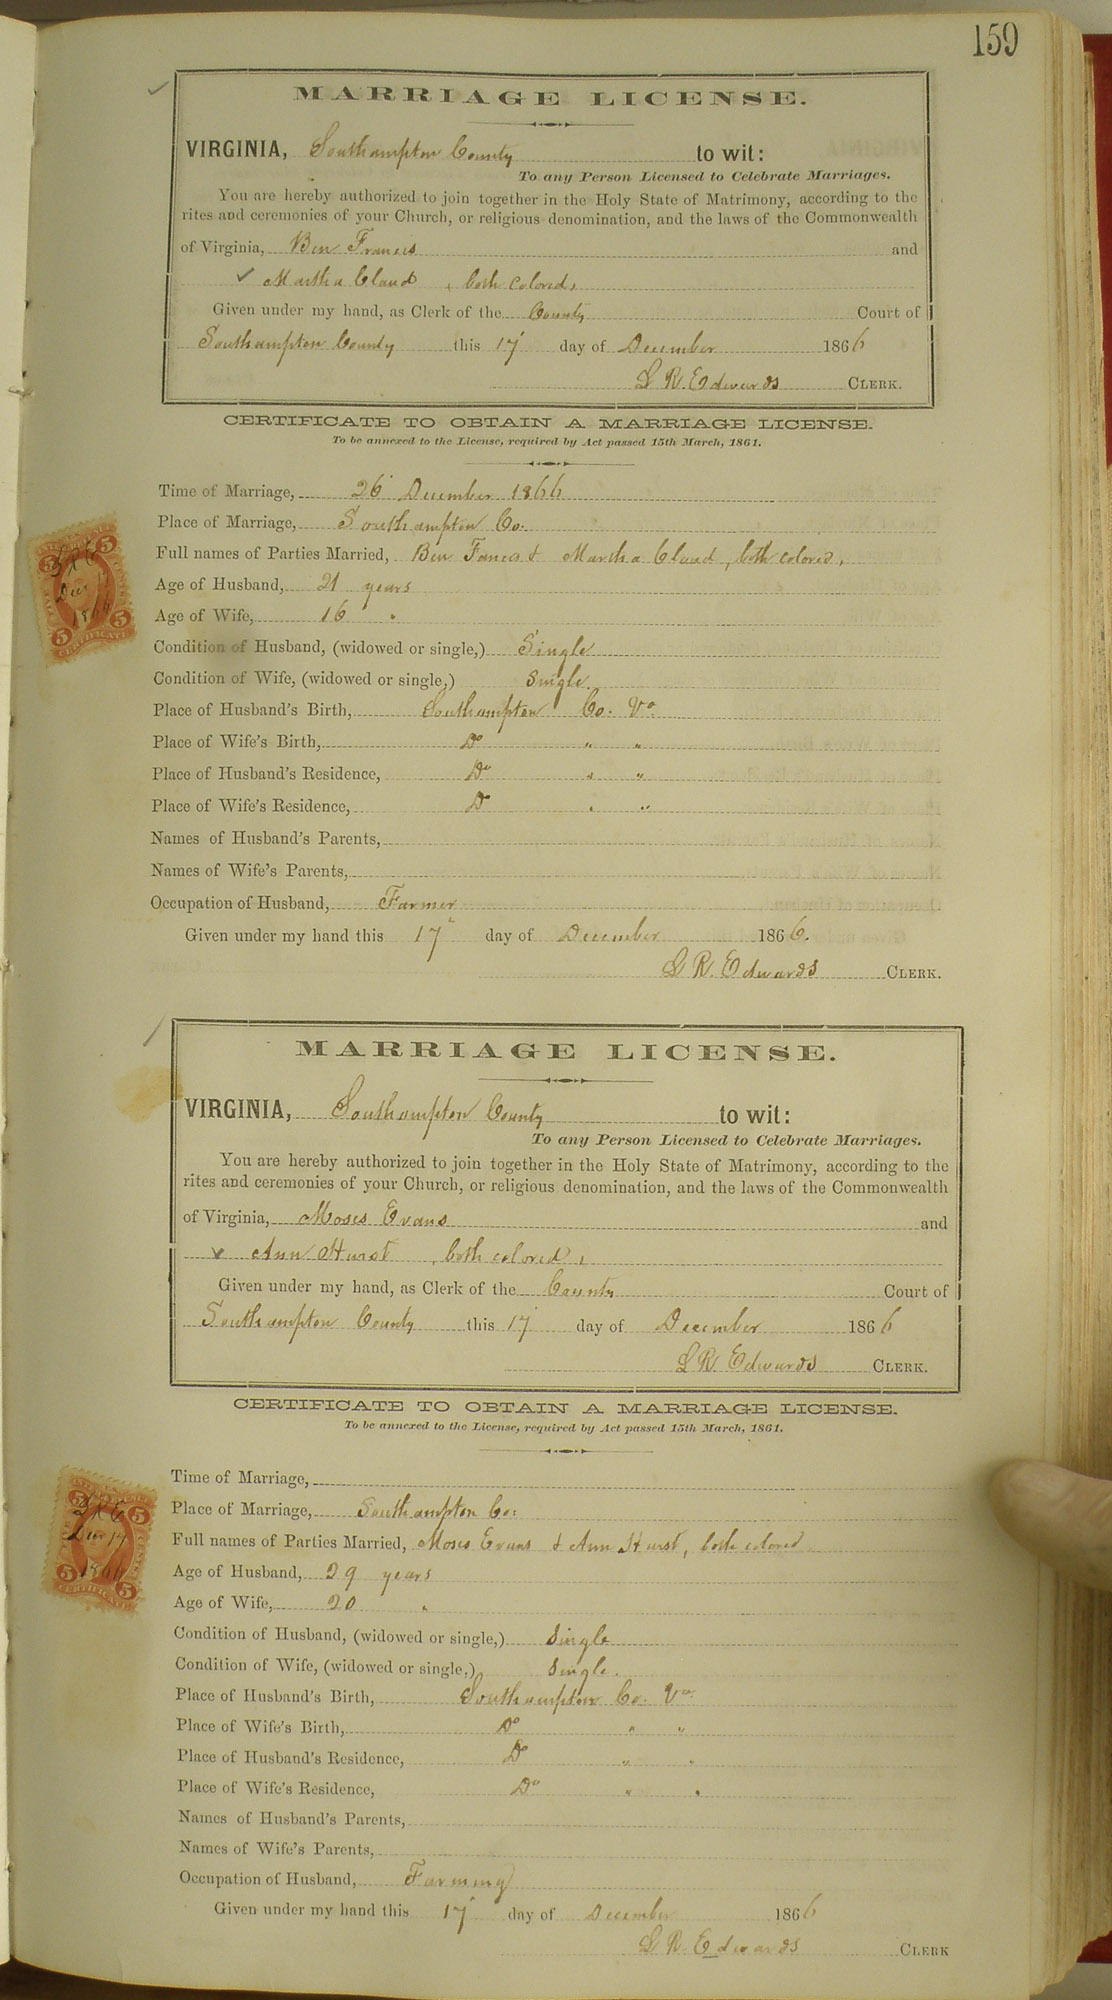 159
MARRIAGE LICENSE.
VIRGINIA, Southampton County to wit:
To any Person Licensed to Celebrate Marriages.
You are hereby authorized to join together in the Holy State of Matrimony, according to the
rites and ceremonies of your Church, or religious denomination, and the laws of the Commonwealth
of Virginia, Ben Francis and
✓ Martha Claud, both colored,
Given under my hand, as Clerk of the County Court of
Southampton County this 17 day of December 1866
L R. Edwards CLERK.
CERTIFICATE TO OBTAIN A MARRIAGE LICENSE.
To be annexed to the License, required by Act passed 15th March, 1861.
Time of Marriage, 26 December 1866
Place of Marriage, Southampton Co.
Full names of Parties Married, Ben Fancis & Martha Claud, both colored,
Age of Husband, 21 years
Age of Wife, 16 "
Condition of Husband, (widowed or single,) Single
Condition of Wife, (widowed or single,) Single
Place of Husband's Birth, Southampton Co. Va
Place of Wife's Birth, Do " "
Place of Husband's Residence, Do " "
Place of Wife's Residence, Do " "
Names of Husband's Parents,
Names of Wife's Parents,
Occupation of Husband, Farmer
Given under my hand this 17 day of December 1866.
L R. Edwards CLERK.
5 5
LRE
Dec 17
1866
5 5
CERTIFICATE
MARRIAGE LICENSE.
VIRGINIA, Southampton County to wit:
To any Person Licensed to Celebrate Marriages.
You are hereby authorized to join together in the Holy State of Matrimony, according to the
rites and ceremonies of your Church, or religious denomination, and the laws of the Commonwealth
of Virginia, Moses Evans and
✓ Ann Hurst, both colored,
Given under my hand, as Clerk of the County Court of
Southampton County this 17 day of December 1866
L R. Edwards CLERK.
CERTIFICATE TO OBTAIN A MARRIAGE LICENSE.
To be annexed to the License, required by Act passed 15th March, 1861.
Time of Marriage,
Place of Marriage, Southampton Co:
Full names of Parties Married, Moses Evans & Ann Hurst, both colored
Age of Husband, 29 years
Age of Wife, 20 "
Condition of Husband, (widowed or single,) Single
Condition of Wife, (widowed or single,) Single.
Place of Husband's Birth, Southampton Co. Va
Place of Wife's Birth, Do " "
Place of Husband's Residence, Do " "
Place of Wife's Residence, Do " "
Names of Husband's Parents,
Names of Wife's Parents,
Occupation of Husband, Farming
Given under my hand this 17 day of December 1866
L R. Edwards CLERK
5 5
LRE
Dec 17
1866
5 5
CERTIFICATE